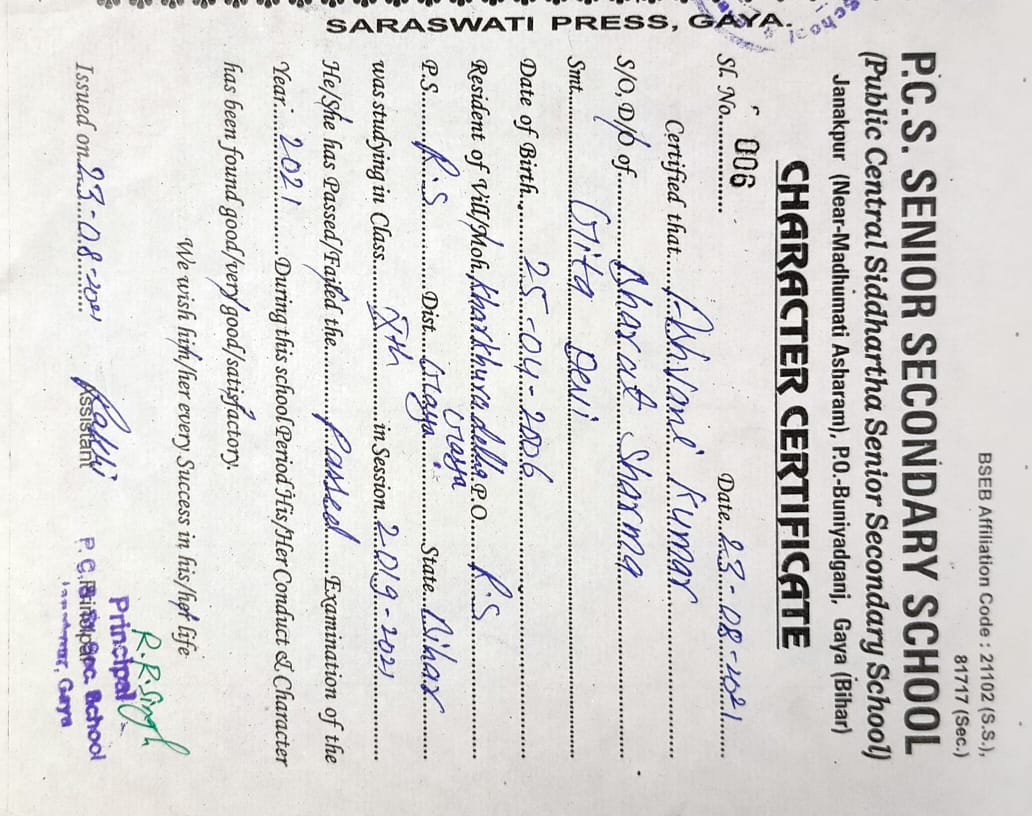 BSEB Affiliation Code : 21102 (S.S.),
81717 (Sec.)
P.C.S. SENIOR SECONDARY SCHOOL
(Public Central Siddhartha Senior Secondary School)
Janakpur (Near-Madhumati Asharam), P.O.-Buniyadganj, Gaya (Bihar)
CHARACTER CERTIFICATE
Sl. No. 006 Date 23-08-2021
Certified that Ashvani Kumar
S/O, D/O of Bharat Sharma
Smt. Gita Devi
Date of Birth 25-04-2006
Resident of Vill/Moh. Kharkhura delha P.O. R.S
Gaya
P.S. R.S Dist. Gaya State Bihar
was studying in Class Xth in Session 2019-2021
He/She has Passed/Failed the passed Examination of the
Year 2021 During this school Period His/Her Conduct & Character
has been found good/very good/satisfactory.
We wish him/her every Success in his/her life
R.R.Singh
Principal
Issued on 23-08-2021 Rakhi
Assistant Principal
P. C. S. Sr. Sec. School
Gaya
SARASWATI PRESS, GAYA.
School